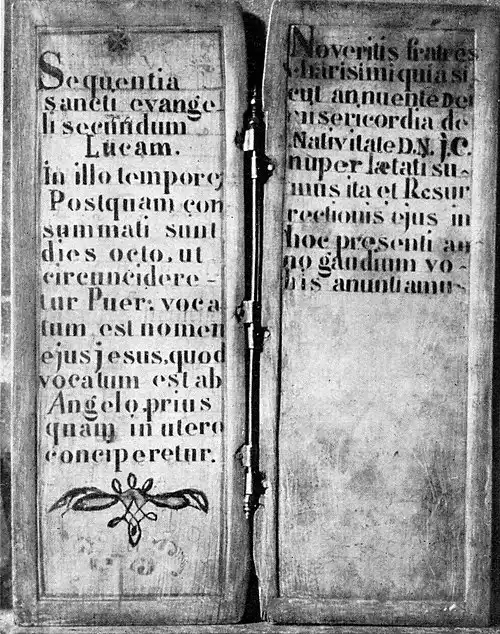 Sequentia
sancti evange-
li secundum
Lucam.
in illo tempore;
Postquam con
summati sunt
dies octo, ut
circuncidere-
tur Puer: voca
tum est nomen
ejus jesus, quod
vocatum est ab
Angelo, prius
quam in utero
conciperetur.
Noveritis fratres
charisimi quia si
cut annuente Dei
misericordia de
Nativitate D.N. j.C.
nuper lætati su-
mus ita et Resur
rectionis ejus in
hoc presenti an
no gaudium vo-
bis anuntiamus